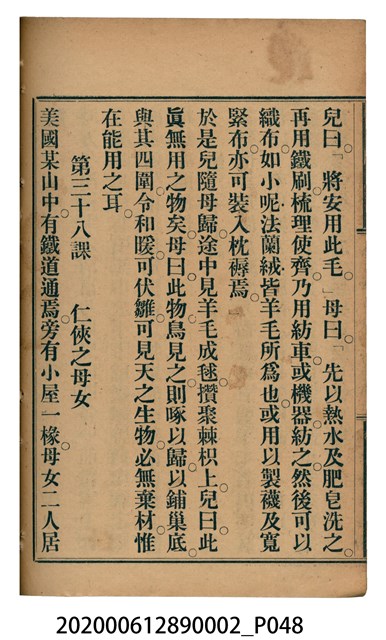 兒曰。「將安用此毛。」母曰。「先以熱水及肥皂洗之。
再用鐵刷梳理使齊。乃用紡車或機器紡之。然後可以
織布。如小呢法蘭絨。皆羊毛所爲也。或用以製襪及寬
緊布。亦可裝入枕褥焉。」
於是兒隨母歸。途中見羊毛成毬。攢聚棘枳上。兒曰。此
眞無用之物矣。母曰。此物鳥見之。則啄以歸。以鋪巢底
與其四圍。令和暖可伏雛。可見天之生物。必無棄材。惟
在能用之耳。
第三十八課　仁俠之母女
美國某山中。有鐵道通焉。旁有小屋一椽。母女二人居
202000612890002_P048